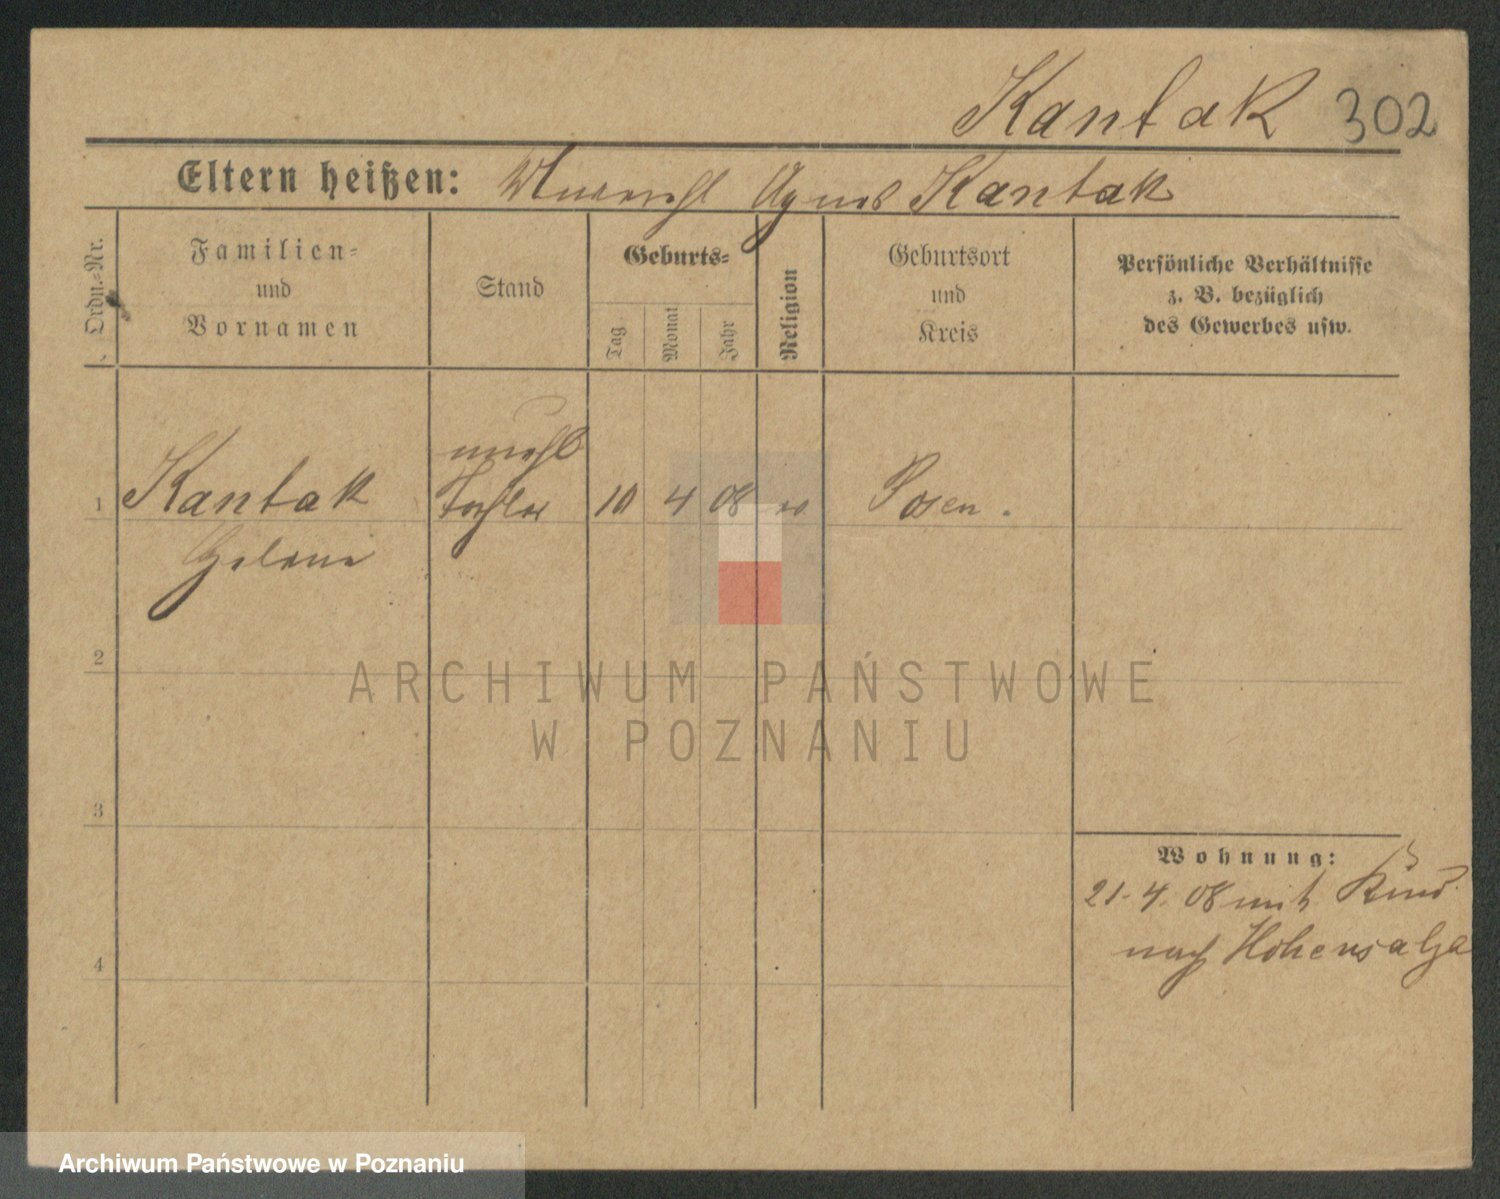 Kantak 302
Eltern heißen: Unverehl Agnes Kantak
Ordn.-Nr.
Familien-
und
Vornamen
Stand
Geburts-
Tag
Monat
Jahr
Religion
Geburtsort
und
Kreis
Persönliche Verhältnisse
z. B. bezüglich
des Gewerbes usw.
unehl
1 Kantak Tochter 10 4 08 Posen.
2
3
4
Wohnung:
21.4.08 mit Kind
nach Hohensalza
ARCHIWUM PAŃSTWOWE
W POZNANIU
Archiwum Państwowe w Poznaniu